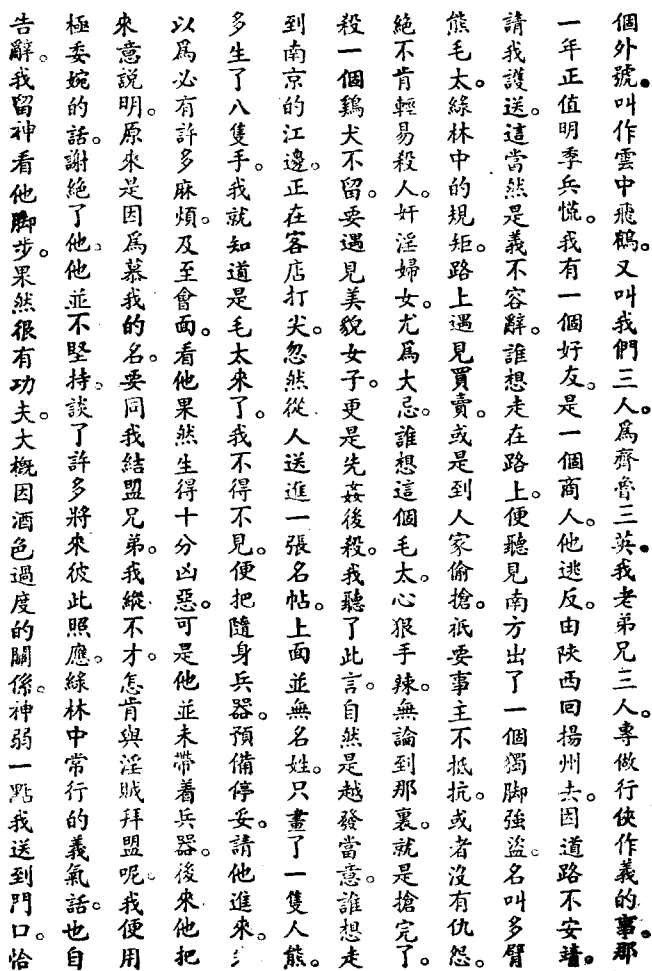 個外號。叫作雲中飛鶴。又叫我們三人。爲齊魯三英。我老弟兄三人。專做行俠作義的事。那
一年正值明季兵慌。我有一個好友。是一個商人。他逃反。由陝西回揚州去。因道路不安靖。
請我護送。這當然是義不容辭。誰想走在路上。便聽見南方出了一個獨脚強盜。名叫多臂
熊毛太。綠林中的規矩。路上遇見買賣。或是到人家偷搶。祇要事主不抵抗。或者沒有仇怨。
絕不肯輕易殺人。奸淫婦女。尤爲大忌。誰想這個毛太。心狠手辣。無論到那裏。就是搶完了。
殺一個鷄犬不留。要遇見美貌女子。更是先姦後殺。我聽了此言。自然是越發當意。誰想走
到南京的江邊。正在客店打尖。忽然從人送進一張名帖。上面並無名姓。只畫了一隻人熊。
多生了八隻手。我就知道是毛太來了。我不得不見。便把隨身兵器。預備停妥。請他進來。
以爲必有許多麻煩。及至會面。看他果然生得十分凶惡。可是他並未帶着兵器。後來他把
來意說明。原來是因爲慕我的名。要同我結盟兄弟。我縱不才。怎肯與淫賊拜盟呢。我便用
極委婉的話。謝絕了他。他並不堅持。談了許多將來彼此照應。綠林中常行的義氣話。也自
告辭。我留神看他脚步。果然很有功夫。大概因酒色過度的關係。神弱一點我送到門口。恰